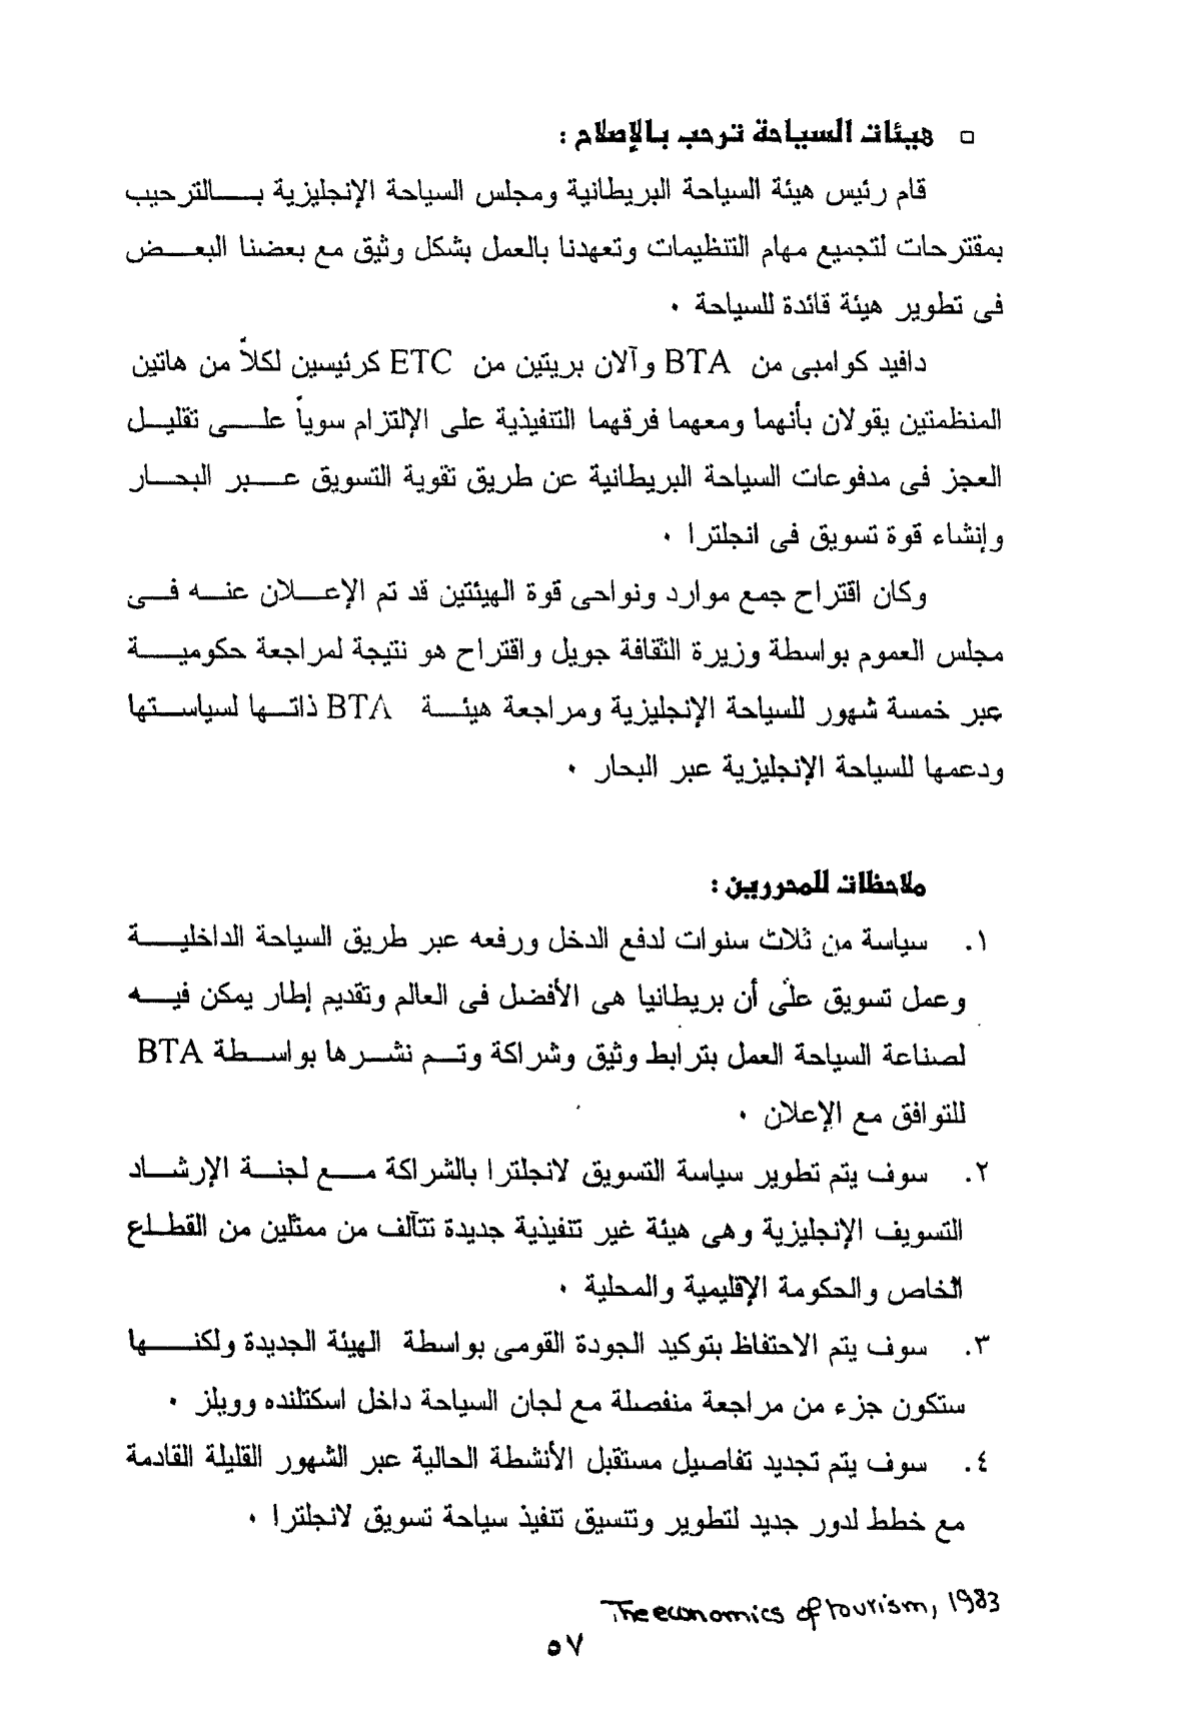 □ هيئات السياحة ترحب بالإصلاح :
قام رئيس هيئة السياحة البريطانية ومجلس السياحة الإنجليزية بالترحيب
بمقترحات لتجميع مهام التنظيمات وتعهدنا بالعمل بشكل وثيق مع بعضنا البعض
فى تطوير هيئة قائدة للسياحة ٠
دافيد كوامبى من BTA وآلان بريتين من ETC كرئيسين لكلاً من هاتين
المنظمتين يقولان بأنهما ومعهما فرقهما التنفيذية على الإلتزام سوياً على تقليل
العجز فى مدفوعات السياحة البريطانية عن طريق تقوية التسويق عبر البحار
وإنشاء قوة تسويق فى انجلترا ٠
وكان اقتراح جمع موارد ونواحى قوة الهيئتين قد تم الإعلان عنه فى
مجلس العموم بواسطة وزيرة الثقافة جويل واقتراح هو نتيجة لمراجعة حكومية
عبر خمسة شهور للسياحة الإنجليزية ومراجعة هيئة BTA ذاتها لسياستها
ودعمها للسياحة الإنجليزية عبر البحار ٠
ملاحظات للمحررين :
١. سياسة من ثلاث سنوات لدفع الدخل ورفعه عبر طريق السياحة الداخلية
وعمل تسويق على أن بريطانيا هى الأفضل فى العالم وتقديم إطار يمكن فيه
لصناعة السياحة العمل بترابط وثيق وشراكة وتم نشرها بواسطة BTA
للتوافق مع الإعلان ٠
٢. سوف يتم تطوير سياسة التسويق لانجلترا بالشراكة مع لجنة الإرشاد
التسويف الإنجليزية وهى هيئة غير تنفيذية جديدة تتآلف من ممثلين من القطاع
الخاص والحكومة الإقليمية والمحلية ٠
٣. سوف يتم الاحتفاظ بتوكيد الجودة القومى بواسطة الهيئة الجديدة ولكنها
ستكون جزء من مراجعة منفصلة مع لجان السياحة داخل اسكتلنده وويلز ٠
٤. سوف يتم تجديد تفاصيل مستقبل الأنشطة الحالية عبر الشهور القليلة القادمة
مع خطط لدور جديد لتطوير وتنسيق تنفيذ سياحة تسويق لانجلترا ٠
The economics of tourism, 1983
٥٧